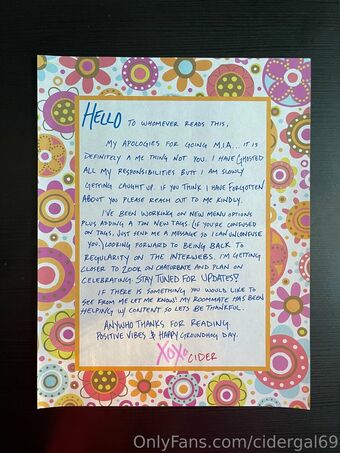 HELLO TO WHOMEVER READS THIS,
MY APOLOGIES FOR GOING M.I.A... IT IS
DEFINITELY A ME THING NOT YOU. I HAVE GHOSTED
ALL MY RESPONSIBILITIES BUT I AM SLOWLY
GETTING CAUGHT UP. IF YOU THINK I HAVE FORGOTTEN
ABOUT YOU PLEASE REACH OUT TO ME KINDLY.
I'VE BEEN WORKING ON NEW MENU OPTIONS
PLUS ADDING A TON NEW TAGS. (IF YOU'RE CONFUSED
ON TAGS, JUST SEND ME A MESSAGE SO I CAN UNCONFUSE
YOU.) LOOKING FORWARD TO BEING BACK TO
REGULARITY ON THE INTERWEBS. I'M GETTING
CLOSER TO 200K ON CHATURBATE AND PLAN ON
CELEBRATING. STAY TUNED FOR UPDATES?
IF THERE IS SOMETHING YOU WOULD LIKE TO
SEE FROM ME LET ME KNOW! MY ROOMMATE HAS BEEN
HELPING W/ CONTENT SO LETS BE THANKFUL.
ANYWHO THANKS FOR READING.
POSITIVE VIBES & HAPPY GROUNDHOG DAY.
XOXO CIDER
OnlyFans.com/cidergal69